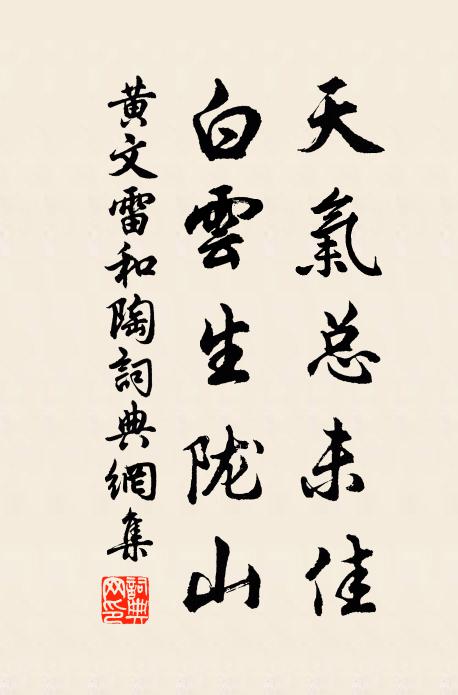 天氣总未佳
白雲生陇山
黃文雷和陶詞典網集
詞典网印